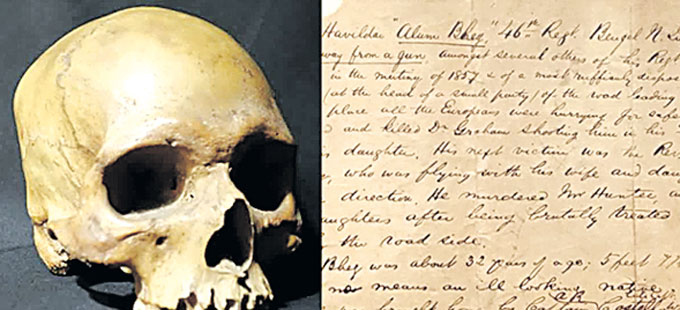 Havildar "Alum Bheg" 46th Regt. Bengal N. I
away from a gun, amongst several others of his Regt
in the mutiny of 1857 of a most ruffianly dispos
at the head of a small party of the road leading
place all the Europeans were hurrying for safe
and killed Dr. Graham shooting him in his
daughter. His next victim was the Rev.
who was flying with his wife and dau
direction. He murdered Mr Hunter, a
aughters after being brutally treated
the road side.
Bheg was about 32 years of age, 5 feet 7
no means an ill looking native
by Captain